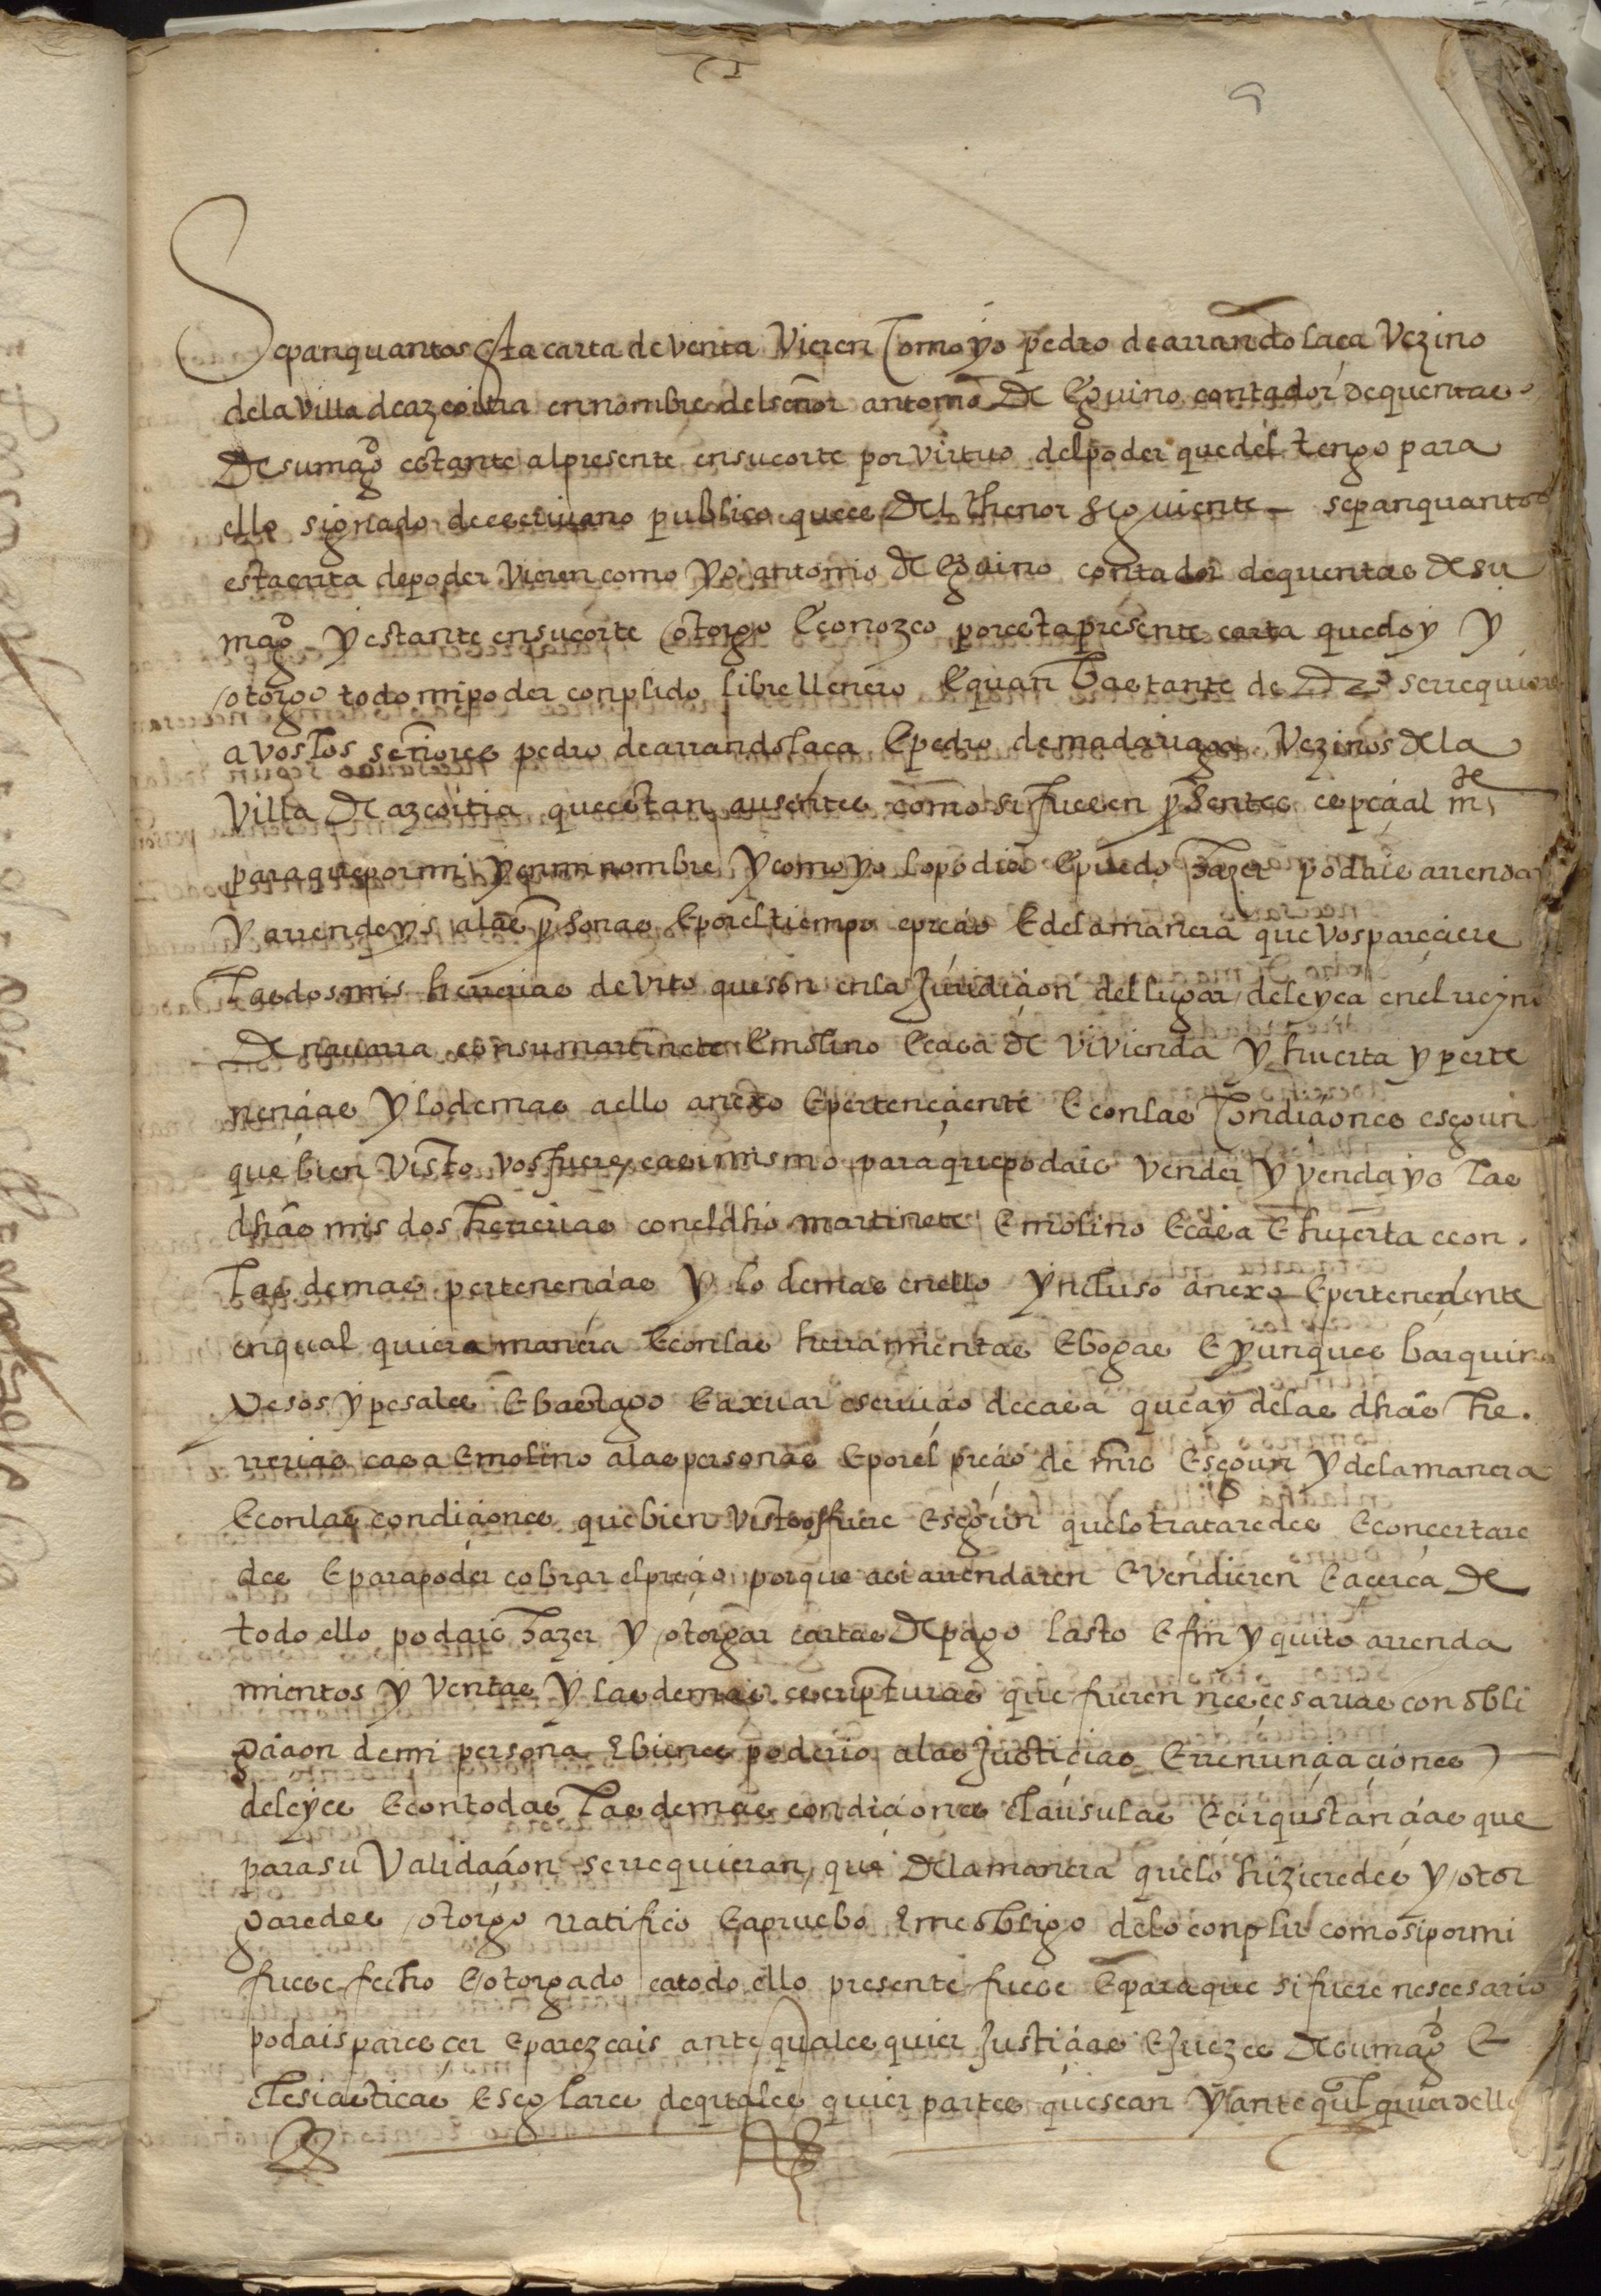 9
Sepan quantos esta carta de venta vieren como yo pedro de arrandolaça vezino
de la villa de azcoitia en nombre del señor antonio de eguino contador de quentas
de su magd estante al presente en su corte por virtud del poder que del tengo para
ello signado de escriuano publico ques del thenor siguiente – sepan quantos
esta carta de poder vieren como yo antonio de eguino contador de quentas de su
magd y estante en su corte otorgo e conozco por esta presente carta que doy y
otorgo todo mi poder conplido libre llenero e quan bastante de drº se rrequiere
a vos los señores pedro de arrandolaça e pedro de madariaga vezinos de la
villa de azcoitia que estan ausentes como si fuesen pͬsentes espeçial mte
para que por mi y en mi nombre y como yo lo podia e puedo hazer podais arrendar
y arrendeys a las pͬsonas e por el tiempo e preçio e de la manera que vos pareçiere
las dos mis herrerias de que son en la juridiçion del lugar de leyça en el rreyno
de nauarra con su martinete e molino e casa de vivienda y huerta y perte
nençias y lo demas a ello anexo e perteneçiente e con las condiçiones e segun
que bien visto vos fuere e asi mismo para que podais vender y vendays las
dhas mis dos herrerias con el dho martinete e molino e casa e huerta e con
las demas pertenençias y lo demas en ello yncluso anexo e perteneçiente
en qual quiera manera e con las herramientas e bogas e yunques barquines
pesos y pesales e bastago e axuar e seruiçio de casa que ay de las dhas he
rrerias casa e molino a las personas e por el preçio de mrs e segun y de la manera
e con las condiçiones que bien visto os fuere e segun que lo trataredes e conçertare
des e para poder cobrar el preçio porque asi arrendaren e vendieren e açerca de
todo ello podais hazer y otorgar cartas de pago lasto e fin y quito arrenda
mientos y ventas y las demas escripturas que fueren neçesarias con obli
gaçion de mi persona e bienes poderio a las justiçias e rrenunçiaçiones
de leyes e con todas las demas condiçiones clausulas e çirqustançias que
para su validaçion se rrequieran que de la manera que lo hizieredes y otor
garedes otorgo rratifico e apruebo e me obligo de lo conplir como si por mi
fuese fecho e otorgado e a todo ello presente fuese e para que si fuere nesçesario
podais paresçer e parezcais ante quales quier justiçias e juezes de su magd e
clesiasticas e seglares de quales quier partes que sean y ante qual quier dellos